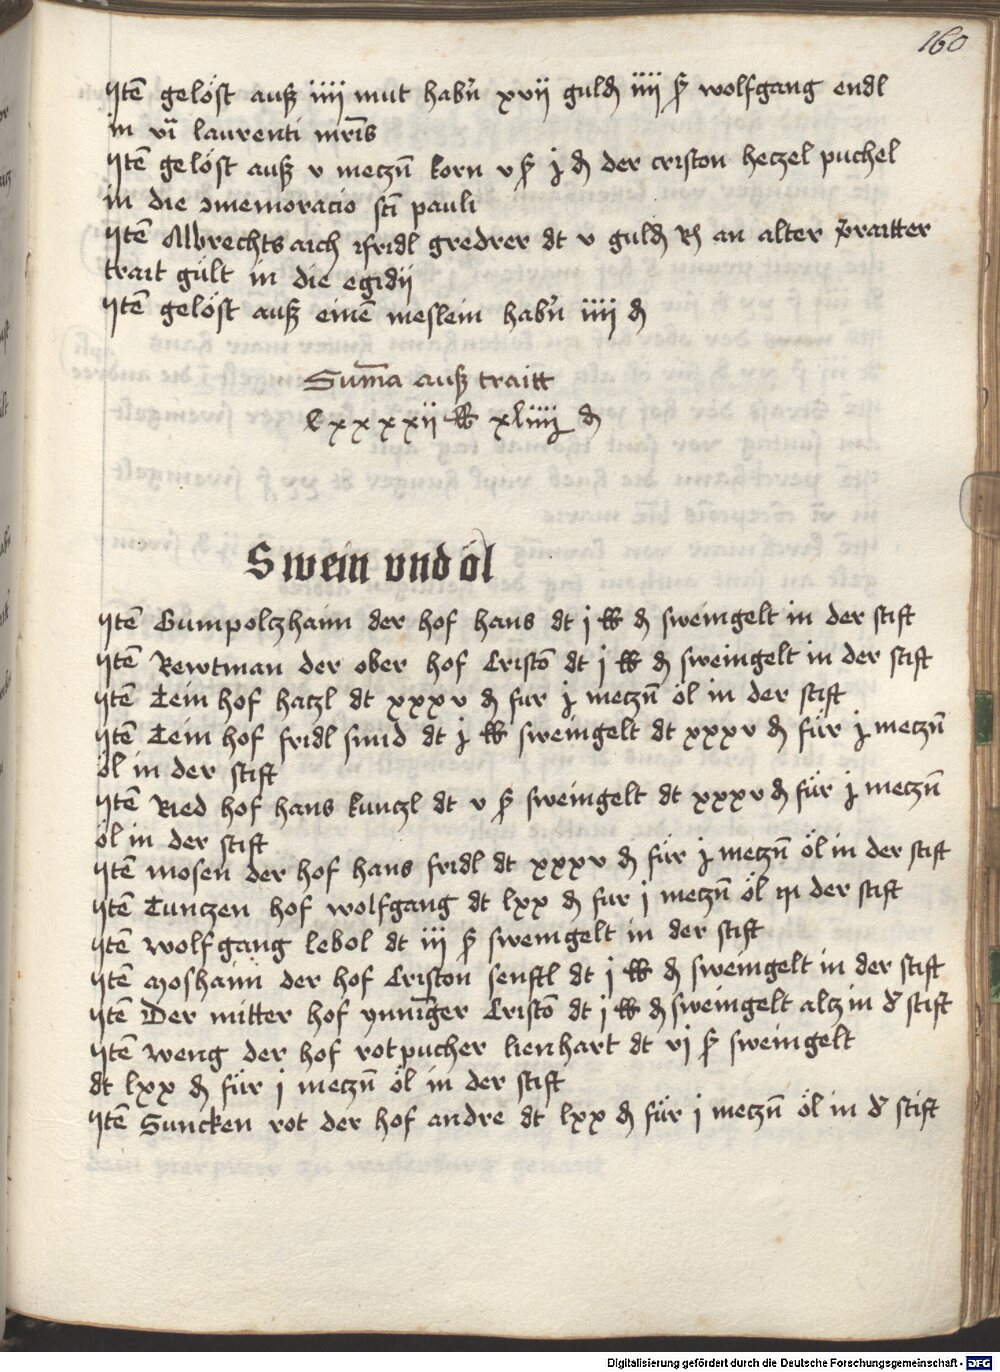 160
Jtē gelöst auß iiii mut habn̄ xvii guld₰ iiii ß wolfgang endl
in vi͞ laurenti mr̄is
Jtē gelöst auß v meczn̄ korn v ß j ₰ der criston heczel puchel
in die ↄmemoracio sct̄i pauli
Jtē Albrechtsaich ifridl gredrer dt v guld₰ Rh an alter praitter
trait gült in die egidij
Jtē gelöst auß einē meslein habn̄ iiii ₰
Sum̄a auß traitt
lxxxxii ℔ xliiij ₰
Swein vnd öl
Jtē Gumpolczhaim der hof hans dt j ℔ ₰ sweingelt in der stift
Jtē Rewtman der ober hof Cristō dt j ℔ ₰ sweingelt in der stift
Jtē Tein hof haczl dt xxxv ₰ fur j meczn̄ öl in der stift
Jtē Tein hof fridl smid dt j ℔ sweingelt dt xxxv ₰ für j meczn̄
öl in der stift
Jtē Ried hof hans kunczl dt v ß sweingelt dt xxxv ₰ für j meczn̄
öl in der stift
Jtē mosen der hof hans fridl dt xxxv ₰ für j meczn̄ öl in der stift
Jtē Tunczen hof wolfgang dt lxx ₰ fur j meczn̄ öl in der stift
Jtē wolfgang lebol dt iii ß sweingelt in der stift
Jtē Moshaim der hof Criston senftl dt j ℔ ₰ sweingelt in der stift
Jtē Der mitter hof ynnīger Cristō dt j ℔ ₰ sweingelt alcz in d' stift
Jtē weng der hof rotpucher lienhart dt vj ß sweingelt
dt lxx ₰ für j meczn̄ öl in der stift
Jtē Suncken rot der hof andre dt lxx ₰ für j meczn̄ öl in d' stift
Digitalisierung gefördert durch die Deutsche Forschungsgemeinschaft - DFG